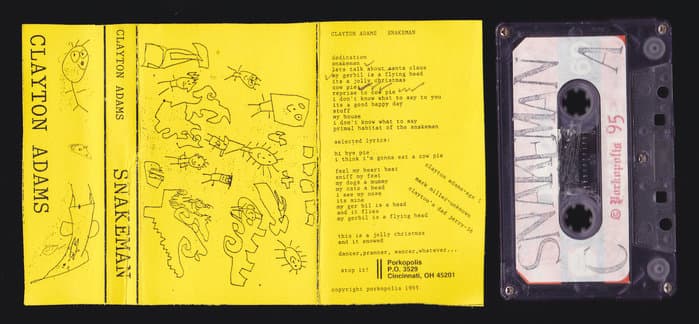 CLAYTON ADAMS
CLAYTON ADAMS
SNAKEMAN
CLAYTON ADAMS SNAKEMAN
dedication
snakeman
lets talk about santa claus
my gerbil is a flying head
its a jolly christmas
cow pie
reprise to cow pie
i don't know what to say to you
its a good happy day
stuff
my house
i don't know what to say
primal habitat of the snakeman
selected lyrics:
hi bye pie
i think i'm gonna eat a cow pie
feel my heart beat
sniff my feet
my dogs a mummy
my cats a head
i see my nose
its mine
my ger bil is a head
and it flies
my gerbil is a flying head
this is a jolly christmas
and it snowed
dancer,prancer, wancer,whatever...
stop it!
clayton adams-age
mark miller-unknown
clayton' dad perry-
Porkopolis
P.O. 3529
Cincinnati, OH 45201
copyright porkopolis 1995
SNAKEMAN
A
© Porkopolis 95